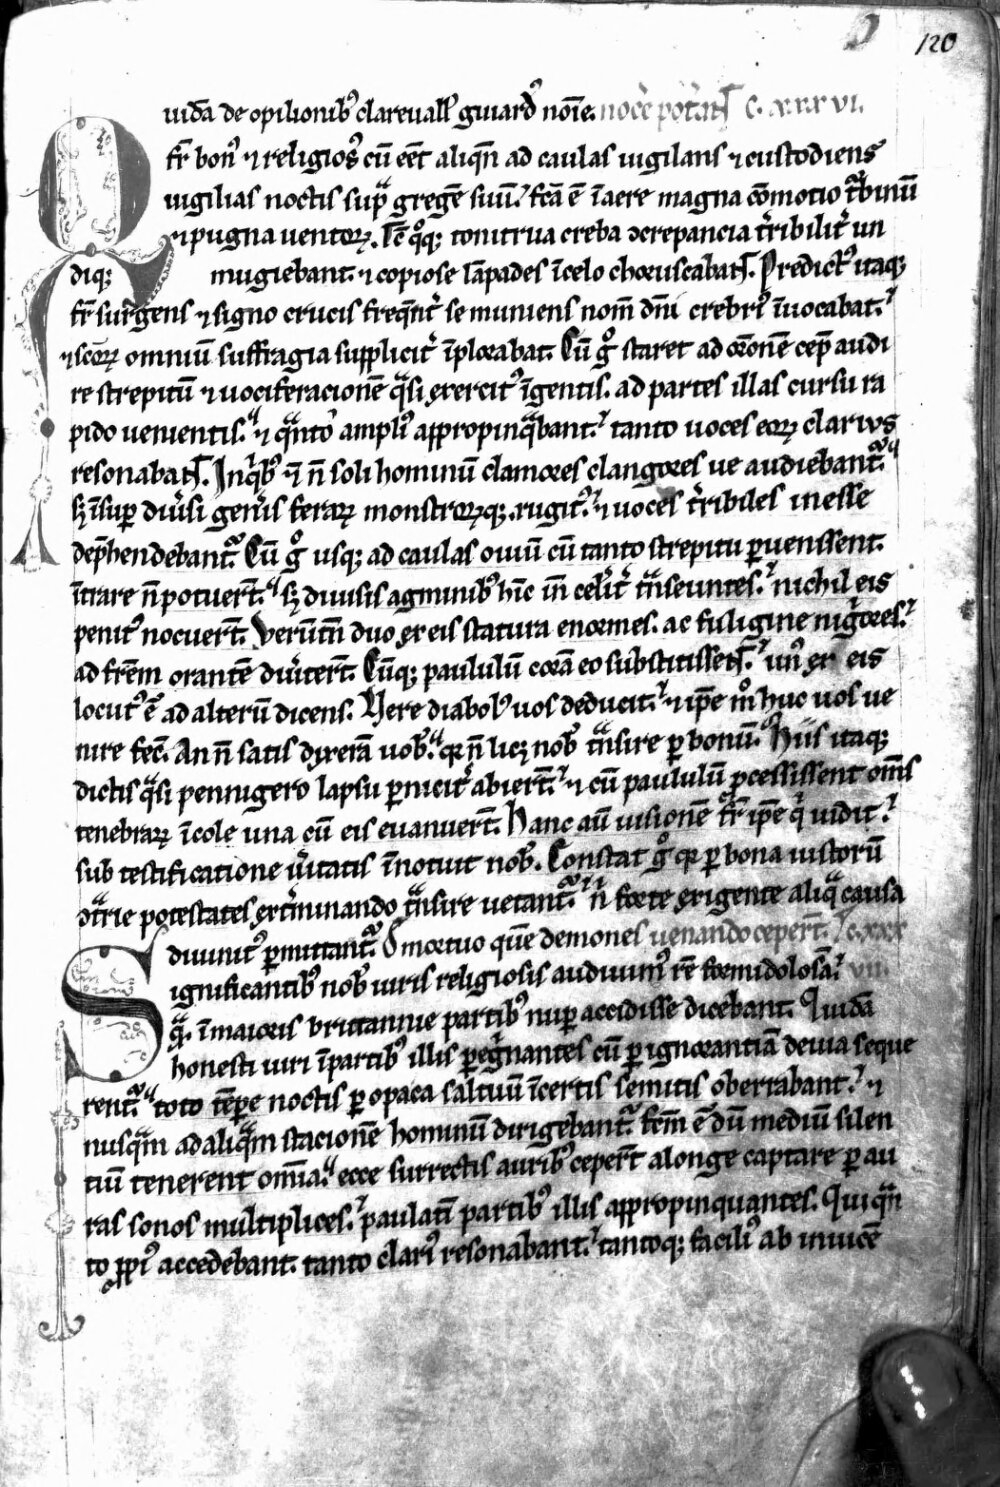 120
Quidā de opilionibꝰ clareuall' guiardꝰ noīe. nocē pot̄ant̄ C. xxx vi.
fr̄ bonꝰ ⁊ religiosꝰ cū eēt aliqn̄ ad caulas uigilans ⁊ custodiens
uigilias noctis supͣ gregē suū. fcā ē ī aere magna cōmotio tͣbinū
⁊ pugna uentoꝝ. Iꝑē qͦqꝫ tonitrua creba ↄcrepancia tͥribilitͥ un
diqꝫ mugiebant. ⁊ copiose lāpades ī celo choruscabāt. Predictꝰ itaqꝫ
fr̄ surgens ⁊ signo crucis freqn̄tͥ se muniens nom̄ dn̄i crebriꝰ īuocabat.
⁊ scōꝝ omniū suffragia supplicitͥ īplorabat. Cū gͦ staret ad orōnē cep̄ audi
re strepitū ⁊ uociferacionē qͣsi exercitꝰ īgentis. ad partes illas cursu ra
pido uenientis. ⁊ qͣntoͦ ampliꝰ appropinqͣbant. tanto uoces eoꝝ clarius
resonabāt. In qͥbꝰ ⁊ n̄ soli hominū clamores clangores ue audiebantͣ.
sꝫ īsuꝑ diuͥsi genͥis feraꝝ monstroꝝqꝫ. rugitꝰ. ⁊ uoces tͥribiles inesse
dep̄hendebantͣ. Cū gͦ usqꝫ ad caulas ouiū cū tanto strepitu ꝑuenissent.
ītrare n̄ potuerͭ. sꝫ diuisis agminibꝰ hīc īn celͥitͥ tͣnseuntes. nichil eis
penitꝰ nocuer̄t. Verūtn̄ duo ex eis statura enormes. ac fuligine nigͥores.
ad frēm orantē diuͥter̄t. Cūqꝫ paululū corā eo substitissent. unꝰ ex eis
locutꝰ ē ad alterū dicens. Vere diabolꝰ uos deducit. ⁊ ip̄e mͦ huc uos ue
nire fec̄. An n̄ satis dixerā uob̄. qꝛ n̄ licꝫ nob̄ tͣnsire ꝑ bonū. Hiis itaqꝫ
dictis qͣsi pennigero lapsu ꝑnicitͥ abier̄t. ⁊ cū paululū ꝓcessissent om̄s
tenebraꝝ īcole una cū eis euanuer̄t. Hanc aū uisionē fr̄ ip̄e qͥ uidit.
sub testificatione uͥitatis īnotuit nob̄. Constat gͦ qꝛ ꝑ bona iustorū
ↄtͣrie potestates extͥminando tͣnsire uetantͣ. n̄ forte exigente aliqͣ causa
diuinitꝰ ꝑmittantͣ. De mortuo quē demones uenando ceper̄t. C. xxx
Significantibꝰ nob̄ uiris religiosis audiuimꝰ rē formidolosā. vii.
qͣ. ī maioris brittannie partibꝰ nuꝑ accidisse dicebant. Quidā
honesti uiri ī partibꝰ illis ꝑegͥnantes cū ꝑ ignorantiā deuia seque
rentͣ. toto tēpore noctis ꝑ opaca saltuū īcertis semitis oberrabant. ⁊
nusqͣm ad aliqͣm stacionē hominū dirigebantͣ. fcm̄ ē dū mediū silen
tiū tenerent omīa. ecce surrectis auribꝰ ceper̄t a longe captare ꝑ au
ras sonos multiplices. paulatī partibꝰ illis appropinquantes. Qui qͣn
to ꝓpiꝰ accedebant. tanto clariꝰ resonabant. tantoqꝫ faciliꝰ ab inuicē